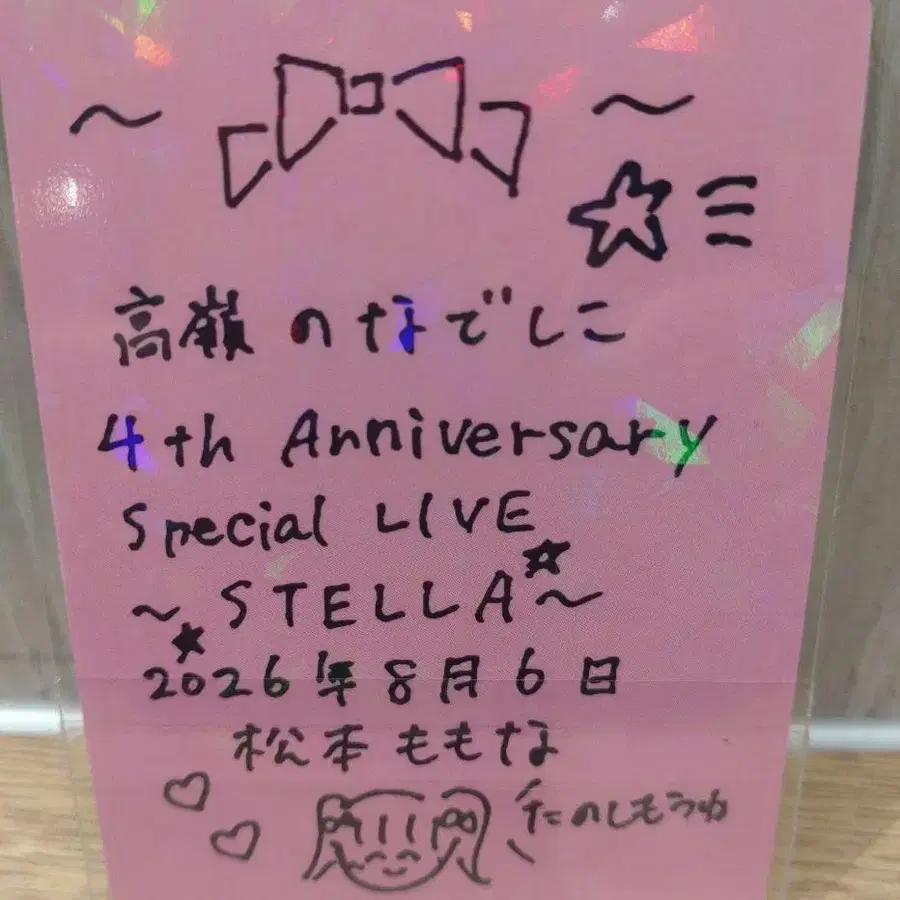 高嶺のなでしこ
4th Anniversary
Special LIVE
~STELLA~
2026年8月6日
松本ももな
たのしもうね